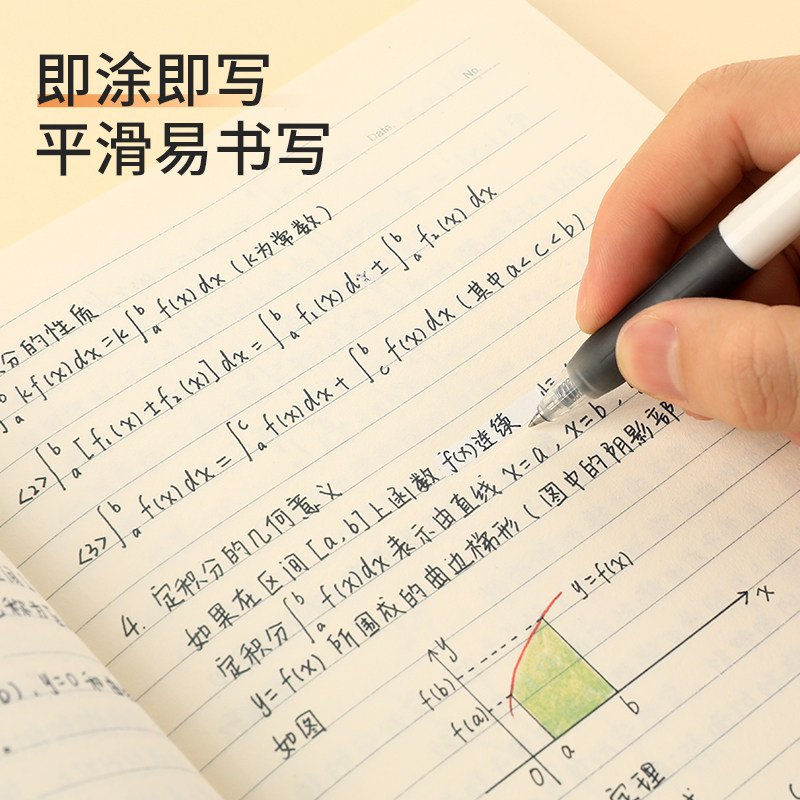 即涂即写
平滑易书写
No.
Date.
分的性质
∫ₐᵇ kf(x)dx=k∫ₐᵇ f(x)dx(k为常数)
<2>∫ₐᵇ[f₁(x)±f₂(x)]dx=∫ₐᵇ f₁(x)dx±∫ₐᵇ f₂(x)dx
<3>∫ₐᵇ f(x)dx=∫ₐᶜ f(x)dx+∫꜀ᵇ f(x)dx(其中a<c<b)
4. 定积分的几何意义
如果在区间[a,b]上函数f(x)连续
定积分∫ₐᵇ f(x)dx表示由直线x=a,x=b,
y=f(x)所围成的曲边梯形(图中的阴影部
如图
y=f(x)
y
x
f(b)
f(a)
0
a
b
定理
y=0和